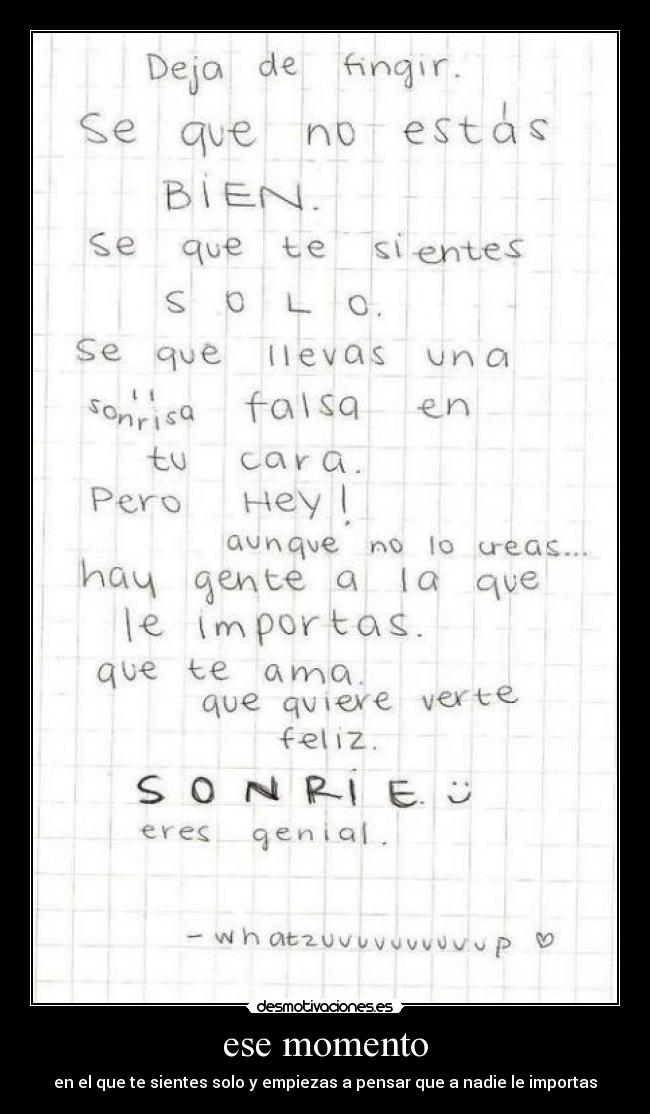 Deja de fingir.
Se que no estás
BiEN.
Se que te sientes
S O L O.
Se que llevas una
sonrisa falsa en
tu cara.
Pero Hey!
aunque no lo creas...
hay gente a la que
le importas.
que te ama.
que quiere verte
feliz.
S O N R Í E. :)
eres genial.
- whatzuvuvuvuvuvup ♡
desmotivaciones.es
ese momento
en el que te sientes solo y empiezas a pensar que a nadie le importas